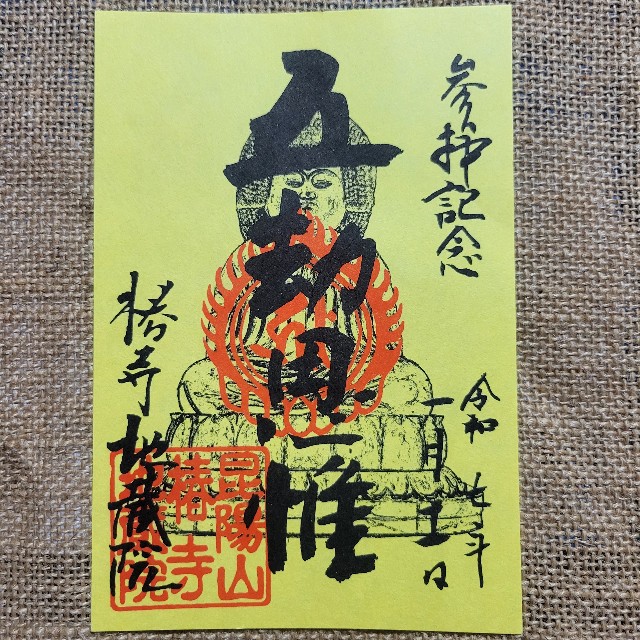 参拝記念
五劫思惟
令和七年
月 日
椿寺地蔵院
昆陽山
椿寺
地蔵院